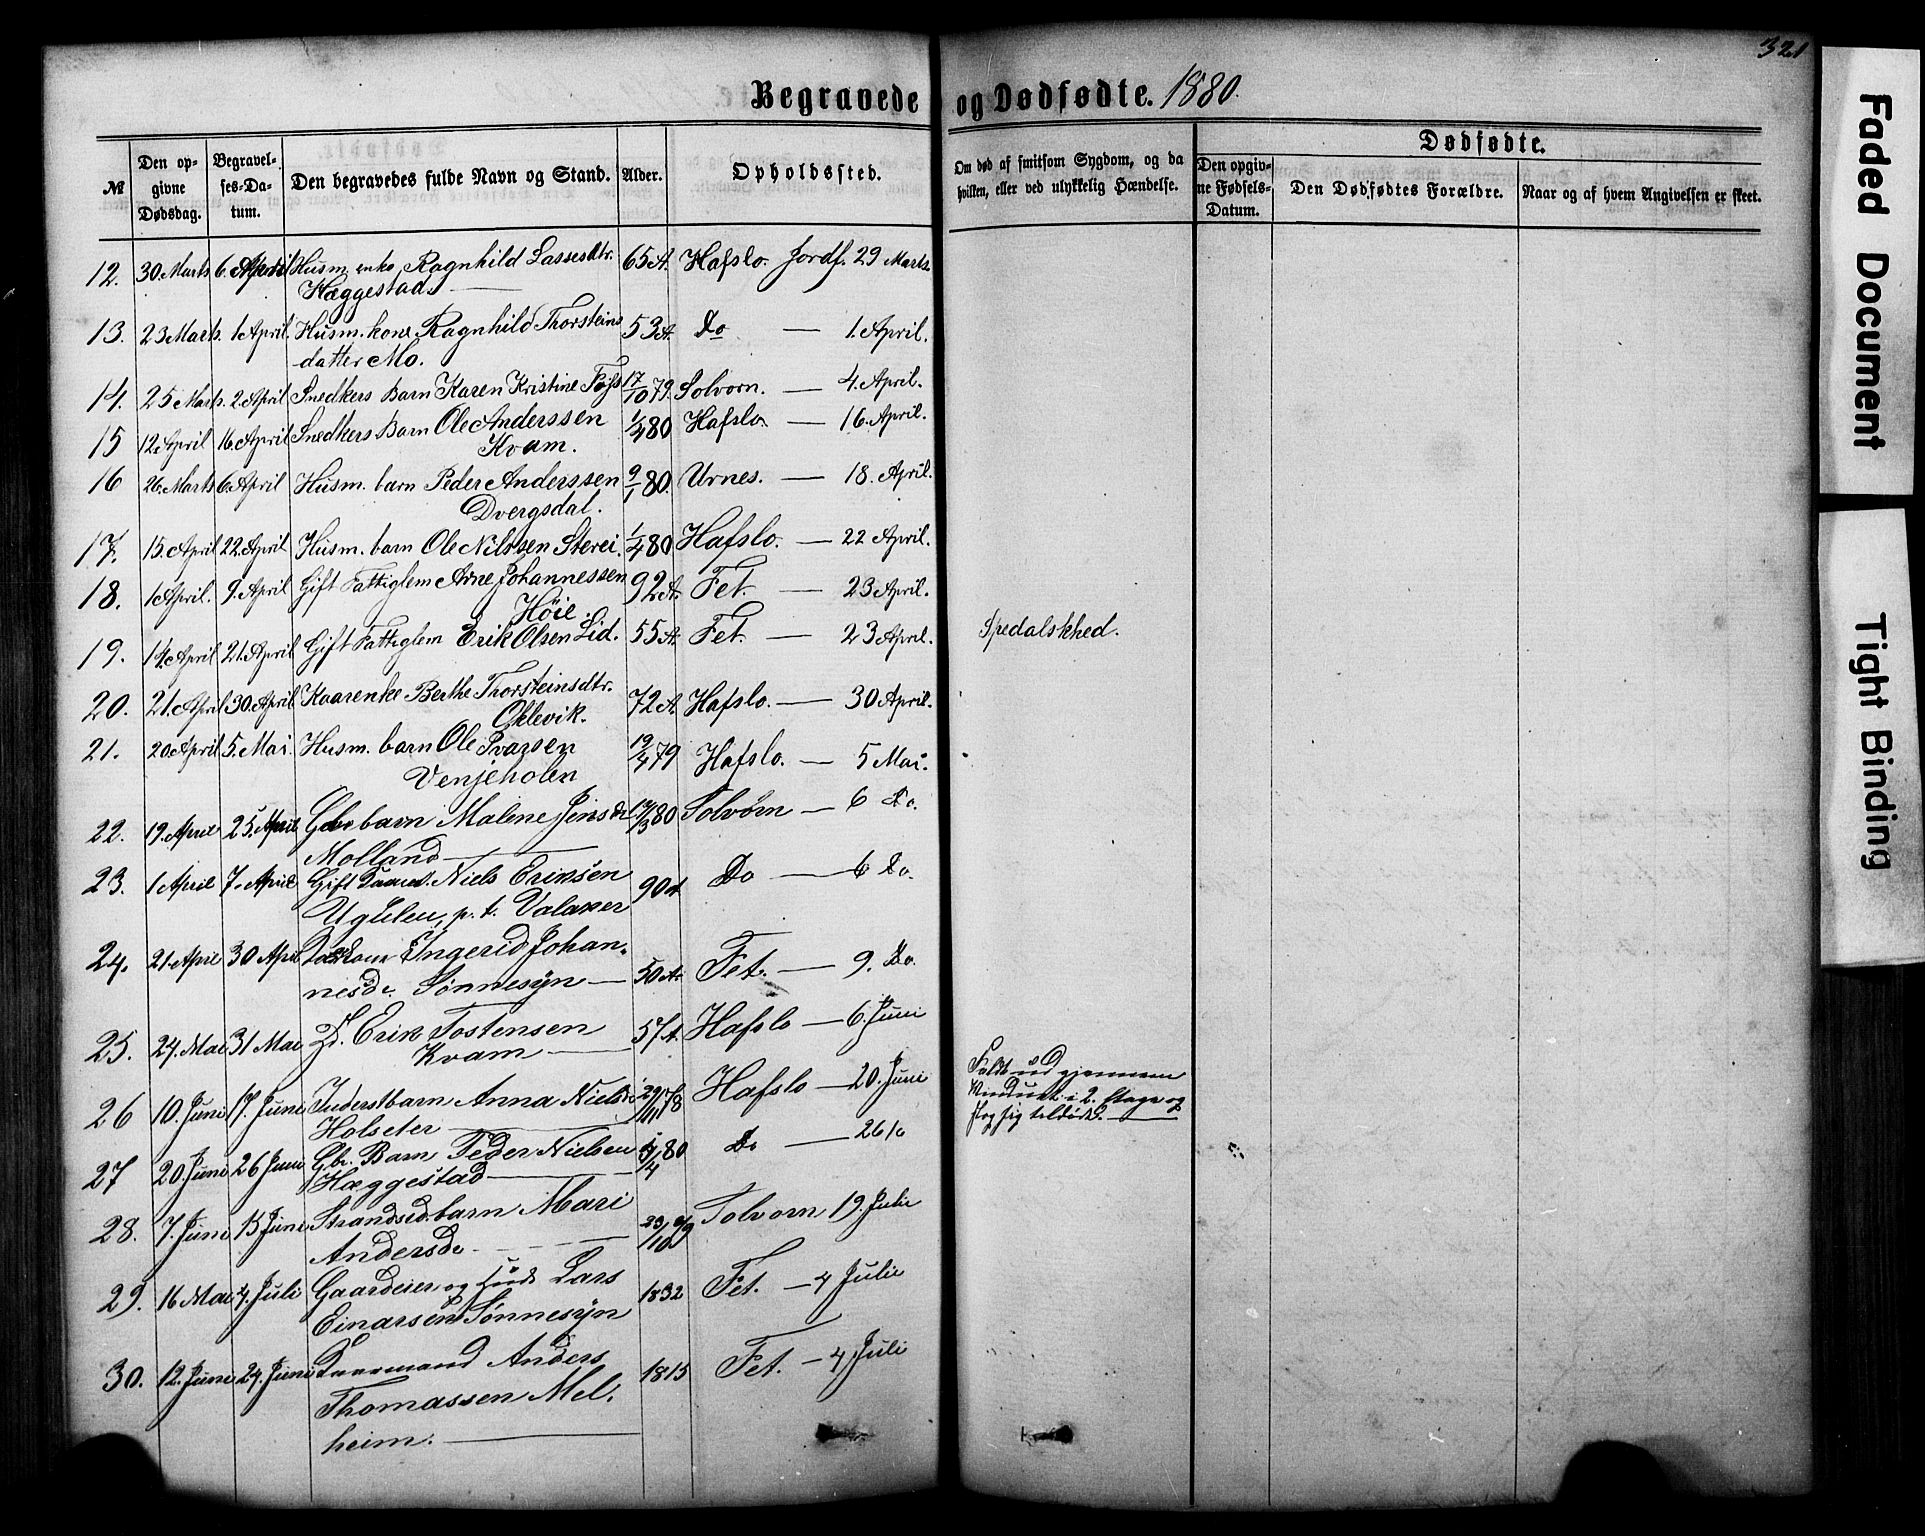 321
Begravede og Dødfødte. 1880.
№
Den opgivne Dødsdag.
Begravelses-Datum.
Den begravedes fulde Navn og Stand.
Alder.
Opholdssted.
Om død af smitsom Sygdom, og da hvilken, eller ved ulykkelig Hændelse.
Dødfødte.
Den opgivne Fødsels-Datum.
Den Dødfødtes Forældre.
Naar og af hvem Angivelsen er skeet.
12. 30 Marts 6. April Husm. enke Ragnhild Lassesdtr. 65 A. Hafslo. Jordf. 29 Marts.
Hæggestad.
13. 23 Marts. 1 April. Husm. kone Ragnhild Thorsteins 53 A. Do — 1. April.
datter Mo.
14. 25 Marts. 2. April Snedkers Barn Karen Kristine 17/10 79. Solvorn. — 4. April.
15 12 April 16. April Snedkers Barn Ole Anderssen 1/4 80 Hafslo. — 16. April.
Kvam.
16 26. Marts 6 April Husm. barn Peder Anderssen 9/1 80. Urnes. — 18. April.
Dvergsdal.
17. 15. April 22. April Husm. barn Ole Nilssen Sterei. 1/4 80 Hafslo. — 22 April.
18. 1 April. 9. April Gift Fattiglem Arne Johannessen 92 A. Fet. — 23 April.
Høie.
19. 14. April 21. April Gift Fattiglem Erik Olsen Lid. 55 A. Fet. — 23 April. Spedalskhed.
20. 21. April 30. April Kaarenke Berthe Thorsteinsdtr. 72 A. Hafslo. — 30 April.
Oklevik.
21. 20 April 5. Mai. Husm. barn Ole Ivarsen 19/4 79 Hafslo. — 5 Mai.
Venjeholen
22. 19. April 25. April Gbr barn Malene Jensdr 12/3 80 Solvorn — 6 Do.
Molland —
23. 1 April 7. April Gift Niels Eriksen 90 A Do — 6 Do.
Uglelen, p. t. Valaker
24. 21. April 30 April Ingerid Johan- 50 A. Fet. — 9. Do.
nesdr. Sønnesyn —
25. 24. Mai 31 Mai Erik Tostensen 57 A. Hafslo — 6. Juni
Kvam —
26 10. Juni 17. Juni Inderstbarn Anna Nielsdr 29/11 78 Hafslo — 20. Juni Faldt ud gjennem
Vinduet i 2. Etage og
slog sig tildøde. —
Holseter —
27 20. Juni 26 Juni Gbr. Barn Peder Nielsen 4/4 80 Do — 26
Hæggestad —
28. 7. Juni 15 Juni Strandsid.barn Mari 23/10 79 Solvorn 19. Julie
Andersdr —
29. 16 Mai 4. Juli Gaardeier og Lars 1832 Fet. — 4 Julie
Einarsen Sønnesyn
30. 12. Juni 24. Juni Kaarmand Anders 1815 Fet. — 4 Juli
Thomassen Mel-
heim. —
Faded Document
Tight Binding